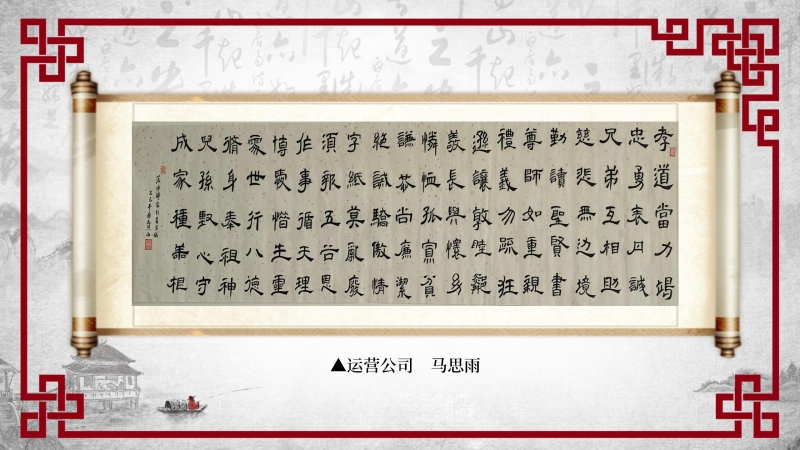 孝道當力竭
忠勇表丹誠
兄弟互相助
慈悲無邊境
勤讀聖賢書
尊師如重親
禮義勿疏狂
遜讓敦睦鄰
義長與懷幼
憐恤孤寡貧
謙恭尚廉潔
絕誡驕傲情
字紙莫亂廢
須報五谷恩
作事循天理
博愛惜生重
處世行八德
脩身奉祖神
兒孫堅心守
成家種善根
▲运营公司 马思雨